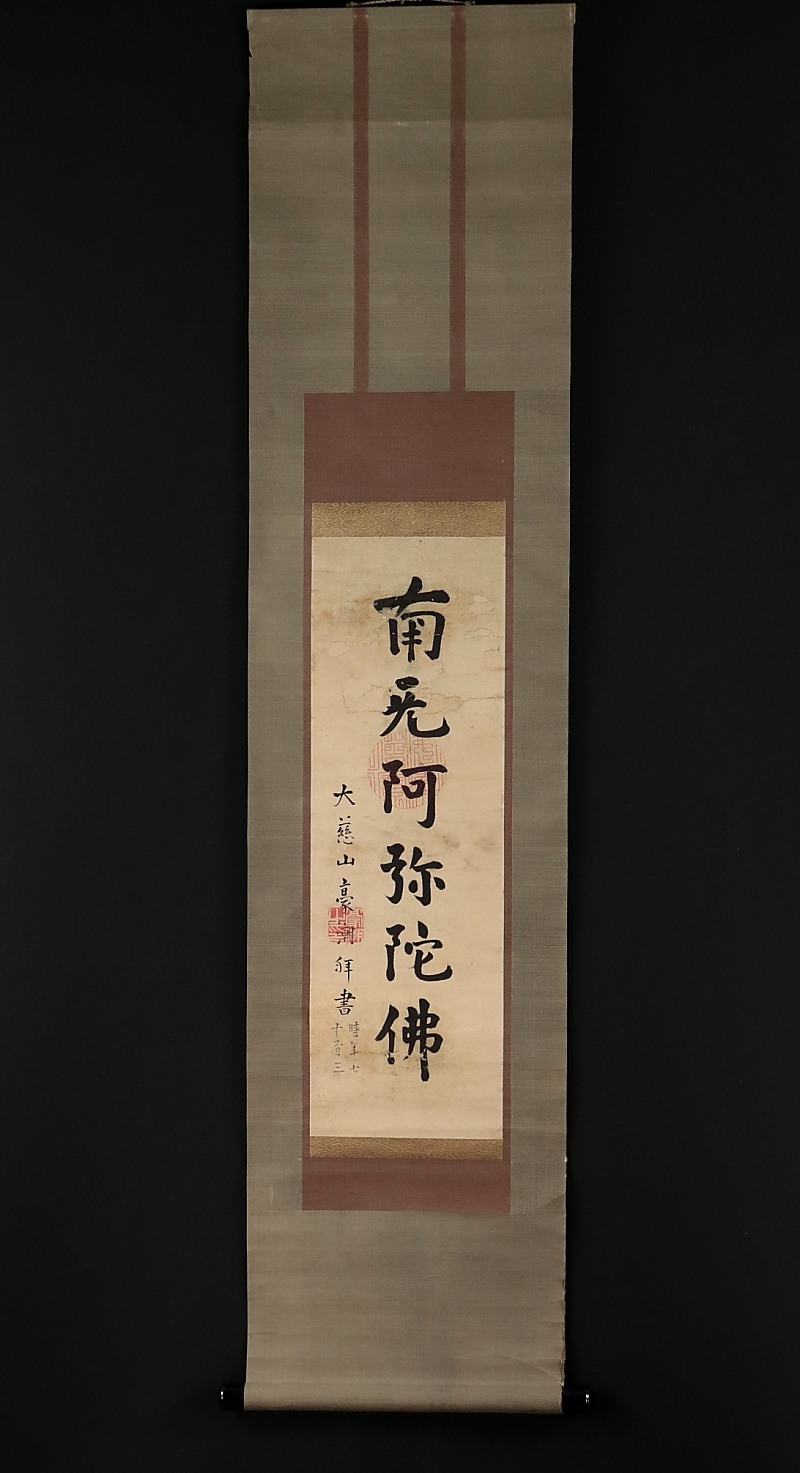 南无阿弥陀佛
大慈山豪潮拜書
時年七
十有三